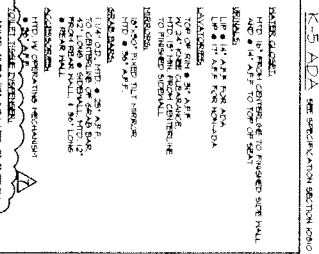 K-5 ADA SEE SPECIFICATION SECTION 10810
WATER CLOSET:
MTD 18" FROM CENTERLINE TO FINISHED SIDE WALL
AND @ 17" A.F.F. TO TOP OF SEAT
URINALS:
LIP @ 14" A.F.F. FOR ADA
LIP @ A.F.F. FOR NON-ADA
LAVATORIES:
TOP OF RIM @ 31" A.F.F.
W/ CLEARANCE,
MTD 15" MIN FROM CENTERLINE
TO FINISHED SIDEWALL
MIRRORS:
18"x30" FIXED TILT MIRROR
MTD @ 36" A.F.F.
GRAB BARS:
1 1/4" O.D. MTD @ 25" A.F.F.
TO CENTERLINE OF GRAB BAR
42" LONG @ SIDEWALL MTD. 12"
FROM REAR WALL & 36" LONG
@ REAR WALL
ACCESSORIES:
MTD. W/ OPERATING MECHANISM
@ 36" A.F.F.
TOILET TISSUE DISPENSER: